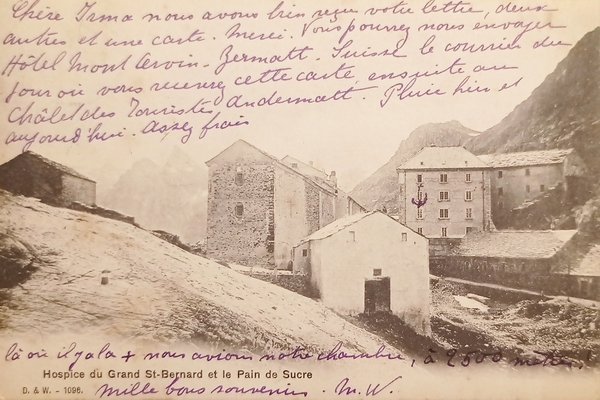 Chère Irma nous avons bien reçu votre lettre, deux
autres et une carte. Merci. Vous pourrez nous envoyer
Hôtel Mont Cervin - Zermatt - Suisse le courrier du
jour où vous recevrez cette carte, ensuite au
Châlet des Touristes Andermatt. Pluie hier et
aujourd'hui. Assez frais
là où il y a la + nous avions notre chambre, à 2500 mètres!
Hospice du Grand St-Bernard et le Pain de Sucre
D. & W. - 1096.
Mille bons souvenirs. M. W.